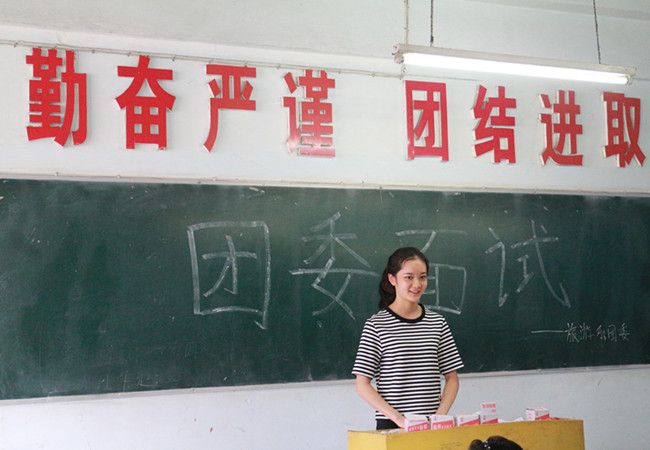 勤奋严谨 团结进取
团委面试
——旅游系团委